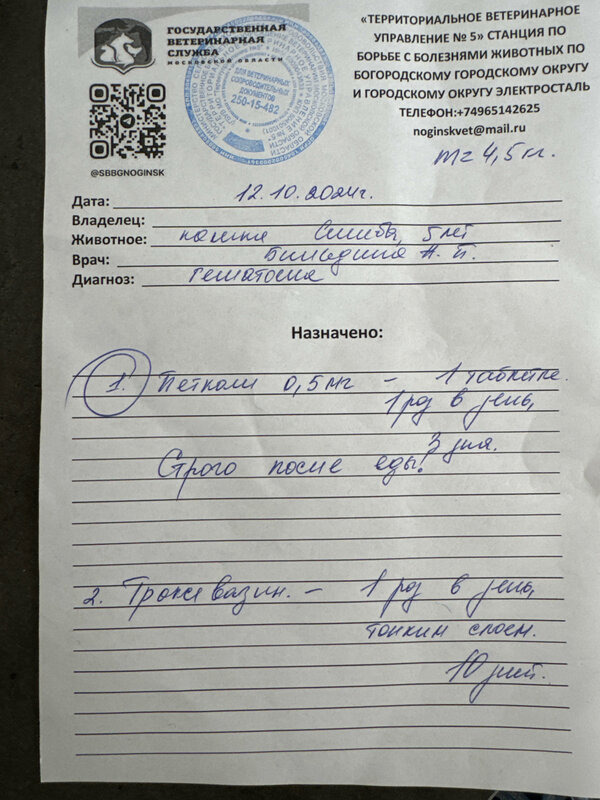 ГОСУДАРСТВЕННАЯ
ВЕТЕРИНАРНАЯ
СЛУЖБА
МОСКОВСКОЙ ОБЛАСТИ
@SBBGNOGINSK
ДЛЯ ВЕТЕРИНАРНЫХ
СОПРОВОДИТЕЛЬНЫХ
ДОКУМЕНТОВ
250-15-482
«ТЕРРИТОРИАЛЬНОЕ ВЕТЕРИНАРНОЕ
УПРАВЛЕНИЕ № 5» СТАНЦИЯ ПО
БОРЬБЕ С БОЛЕЗНЯМИ ЖИВОТНЫХ ПО
БОГОРОДСКОМУ ГОРОДСКОМУ ОКРУГУ
И ГОРОДСКОМУ ОКРУГУ ЭЛЕКТРОСТАЛЬ
ТЕЛЕФОН:+74965142625
noginskvet@mail.ru
m= 4,5 кг.
Дата: 12.10.2024г.
Владелец:
Животное: кошка Симба, 5 лет
Врач: А. П.
Диагноз: гематома
Назначено:
1. Петкам 0,5 мг - 1 таблетке
1 раз в день,
3 дня.
Строго после еды!
2. Троксевазин. - 1 раз в день,
тонким слоем.
10 дней.